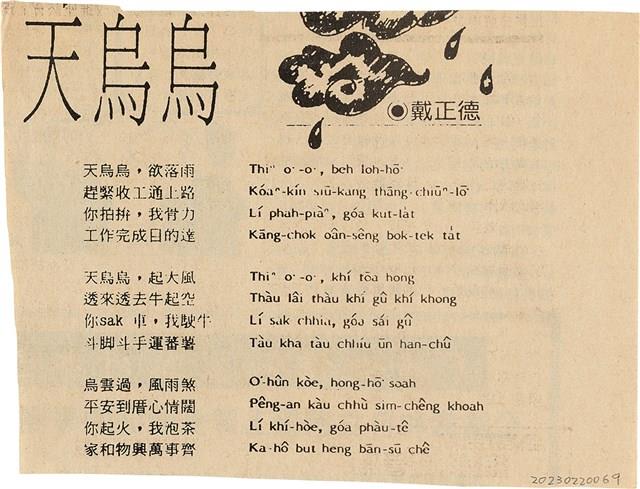 天烏烏
◉戴正德
天烏烏，欲落雨 Thiⁿ o·-o·, beh lo̍h-hō·
趕緊收工通上路 Kóaⁿ-kín siū-kang thāng-chiūⁿ-lō·
你拍拚，我骨力 Lí phah-piàⁿ, góa ku̍t-la̍t
工作完成目的達 Kāng-chok oân-sêng bo̍k-tek ta̍t
天烏烏，起大風 Thiⁿ o·-o·, khí tōa hong
透來透去牛起空 Thàu lâi thàu khí gû khí khong
你sak 車，我駛牛 Lí sak chhia, góa sái gû
斗脚斗手運蕃薯 Tàu kha tàu chhiú ūn han-chû
烏雲過，風雨煞 O·-hûn kòe, hong-hō· soah
平安到厝心情闊 Pêng-an kàu chhù sim-chêng khoah
你起火，我泡茶 Lí khí-hòe, góa phàu-tê
家和物興萬事齊 Ka-hô but heng bān-sū chê
20230220069